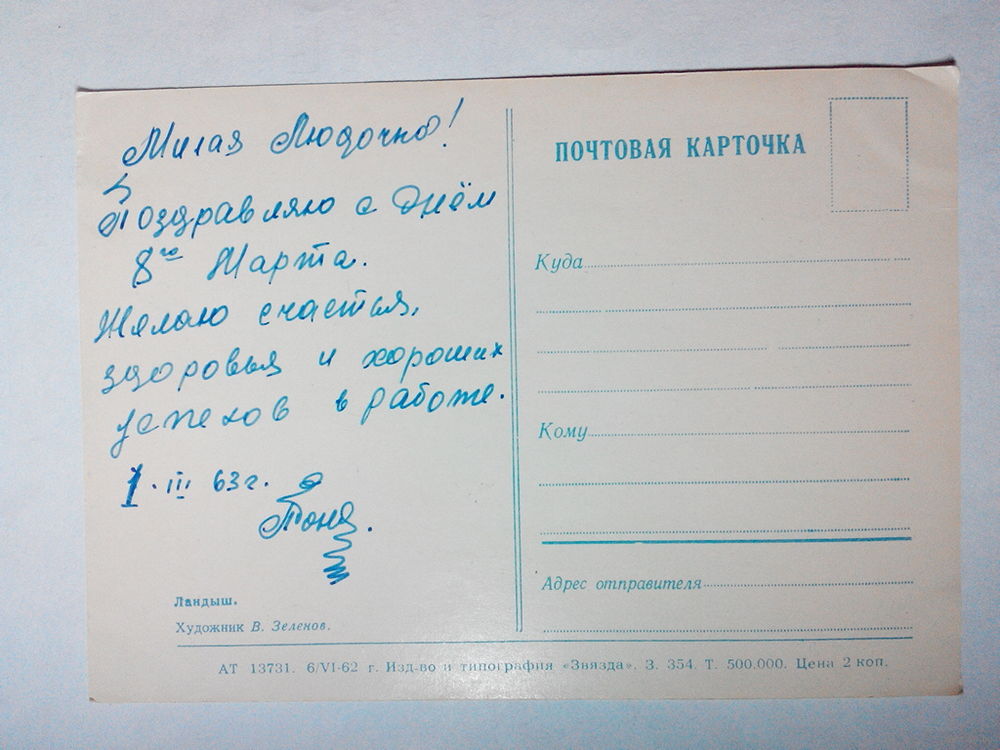 Милая Людочка!
Поздравляю с Днём
8го Марта.
Желаю счастья,
здоровья и хороших
успехов в работе.
1. III 63 г.
Тоня.
Ландыш.
Художник В. Зеленов.
ПОЧТОВАЯ КАРТОЧКА
Куда
Кому
Адрес отправителя
АТ 13731. 6/VI-62 г. Изд-во и типография «Звязда». З. 354. Т. 500.000. Цена 2 коп.